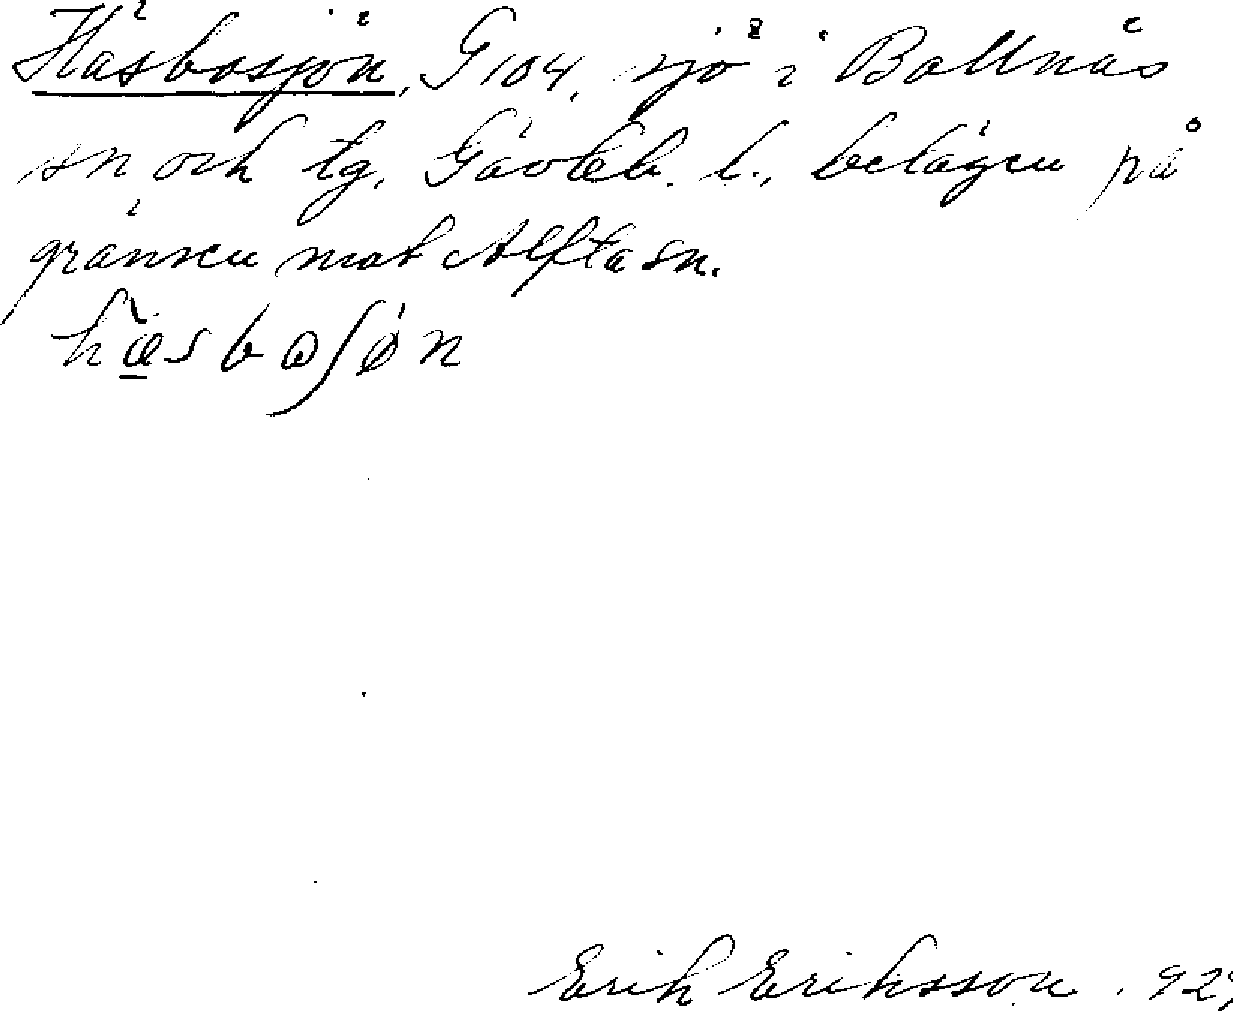 Häsbosjön, G 104, sjö i Bollnäs
sn och tg, Gävleb. l., belägen på
gränsen mot Alfta sn.
Erik Eriksson. 92